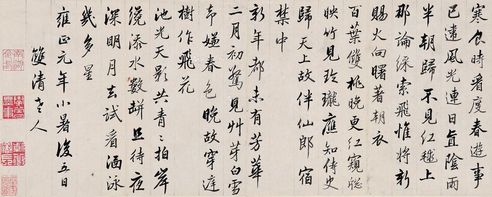 寒食時看度春遊事
已違風光連日直陰雨
半朝歸不見紅毬上
那論綵索飛惟將新
賜火向曙著朝衣
百葉緗桃晚更紅窺窓
映竹見玲瓏應知侍史
歸天上故伴仙郎宿
禁中
新年都未有芳華
二月初驚見艸芽白雪
却嫌春色晚故穿庭
樹作飛花
池光天影共青〻拍岸
纔添水數缾且待夜
深明月去試看涵泳
幾多星
雍正元年小暑後五日
雙清老人